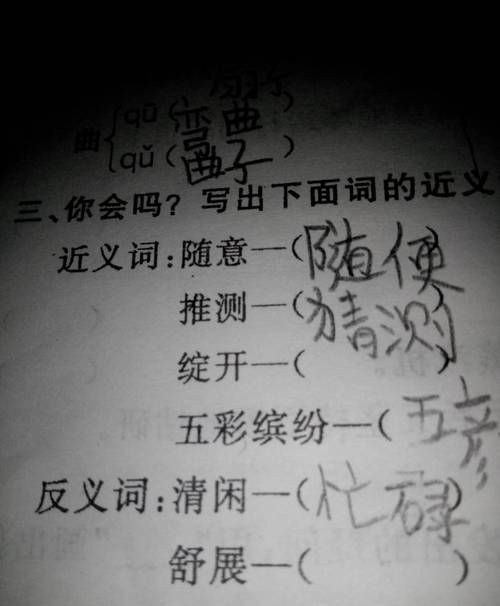 扇子
曲{qū(弯曲)
qǔ(曲子)
三、你会吗？写出下面词的近义
近义词:随意—(随便)
推测—(猜测)
绽开—(
五彩缤纷—(五彦
反义词:清闲—(忙碌)
舒展—( )